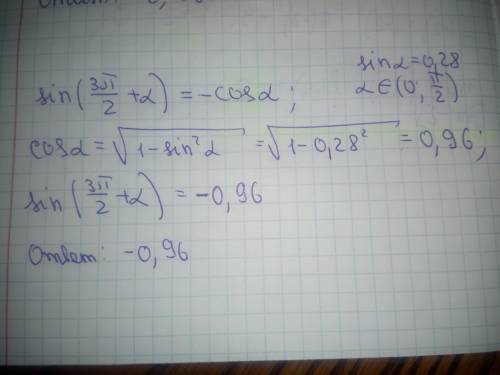 sin α = 0,28
α ∈ (0; π/2)
sin(3π/2 + α) = -cos α;
cos α = √(1 - sin² α) = √(1 - 0,28²) = 0,96;
sin(3π/2 + α) = -0,96
Ответ: -0,96